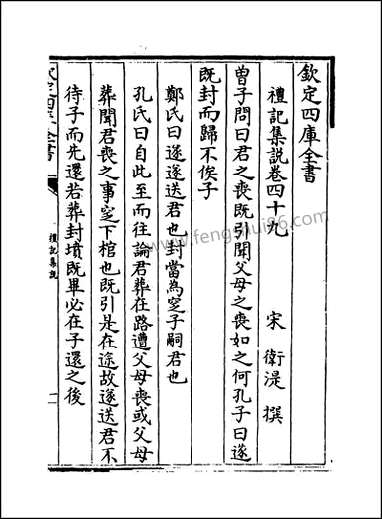 欽定四庫全書
禮記集說卷四十九
宋 衛湜 撰
曾子問曰君之喪既引聞父母之喪如之何孔子曰遂
既封而歸不俟子
鄭氏曰遂遂送君也封當為窆子嗣君也
孔氏曰自此至而往論君葬在路遭父母喪或父母
葬聞君喪之事窆下棺也既引是在途故遂送君不
待子而先還若葬封墳既畢必在子還之後
欽定四庫全書
禮記集說
一
www.fengshui86.com